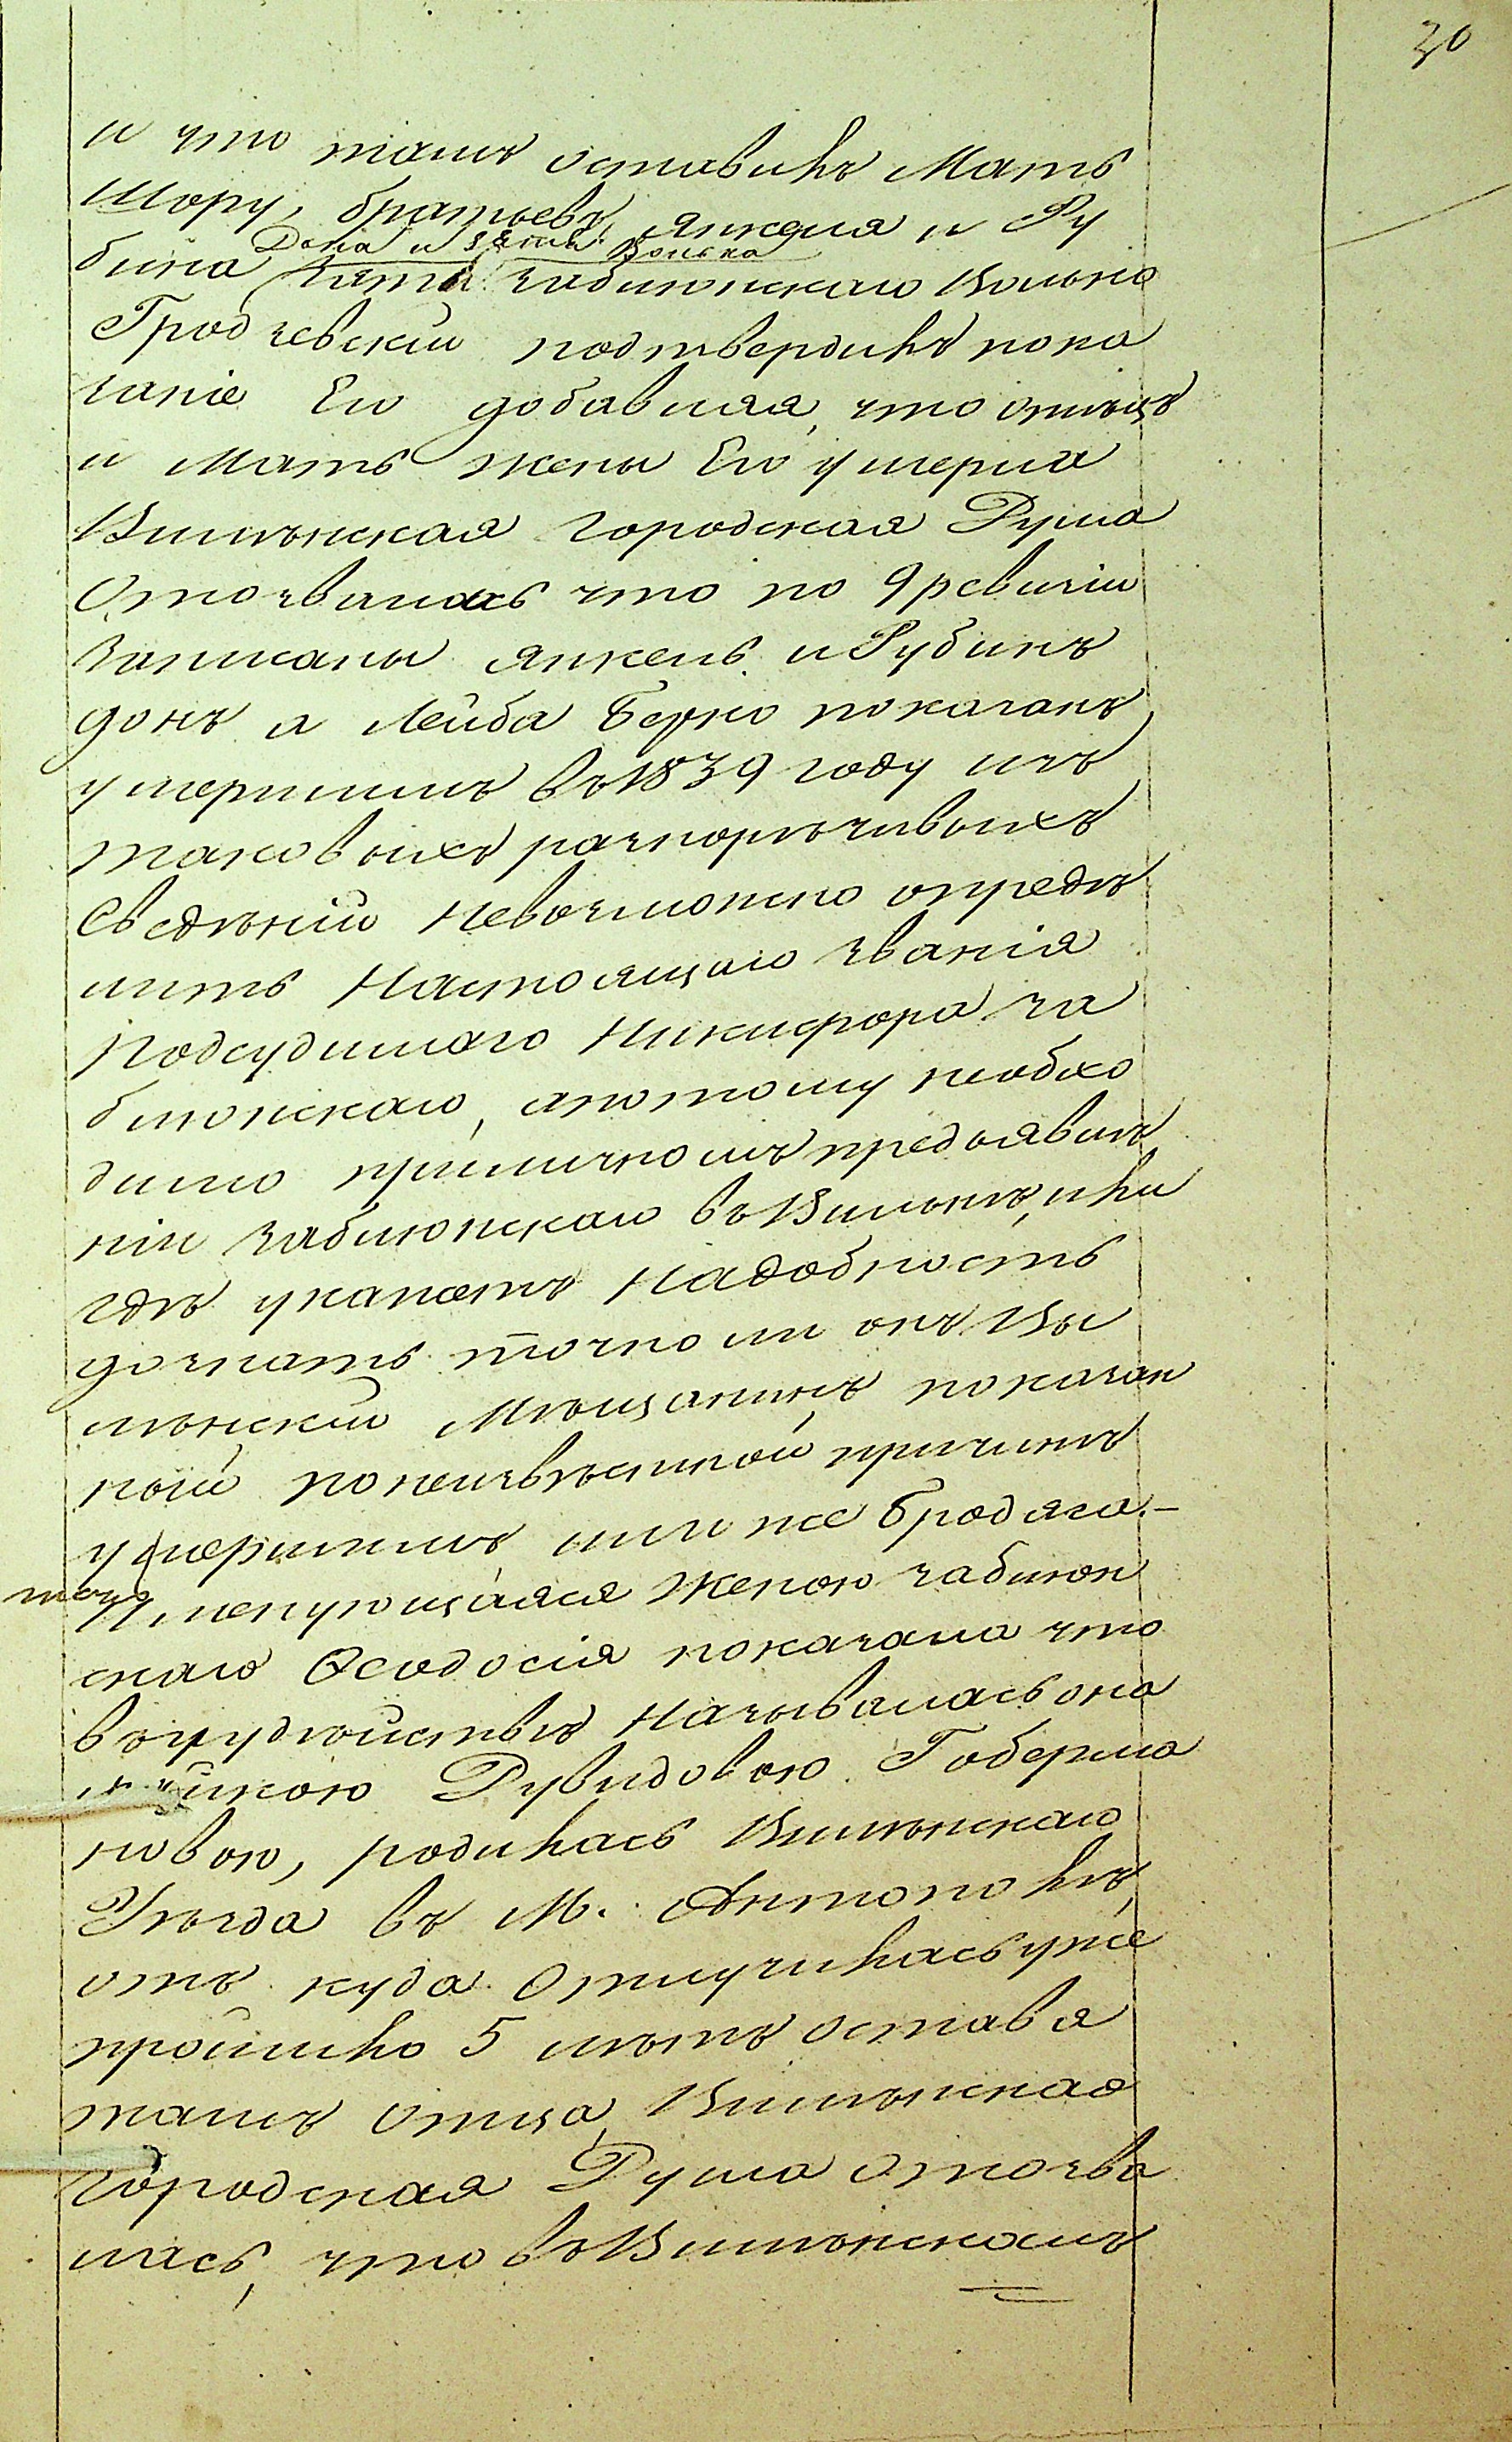 30
и что тамъ оставилъ Мать
Шору, братьевъ, Янкеля и Ру
Дона и зятя Волька
бина зятя заблонскаго Волько
Гродзевскій подтвердилъ пока
заніе Его добавляя, что отецъ
и Мать жены Его умерла
Виленская городская Дума
Отозвалась что по 9 ревизіи
записаны Янкель и Рубинъ
донъ а Лейба Берко показанъ
умершимъ въ 1839 году изъ
таковыхъ разноречивыхъ
Сведѣній невозможно опредѣ
лить Настоящаго званія
Подсудимаго Никифора за
блонскаго, а потому необхо
димо при личномъ предъявле
ніи заблонскаго въ Вильнѣ, или
гдѣ укажетъ надобность
дознать точно ли онъ Ви
ленскій Мѣщанинъ показан
ной по неизвѣстной причинѣ
умершимъ или же бродяга.—
тоже
Именующаяся Женою заблон
скаго Ѳеодосія показала что
въ іудействѣ Называлась она
Рувидовою Гоберма
новою, родилась Виленскаго
Уѣзда въ М. Антоколѣ,
отъ куда Отлучилась уже
пройшло 5 лѣтъ оставя
тамъ отца, Виленская
городская Дума отозва
лась, что въ Виленскомъ